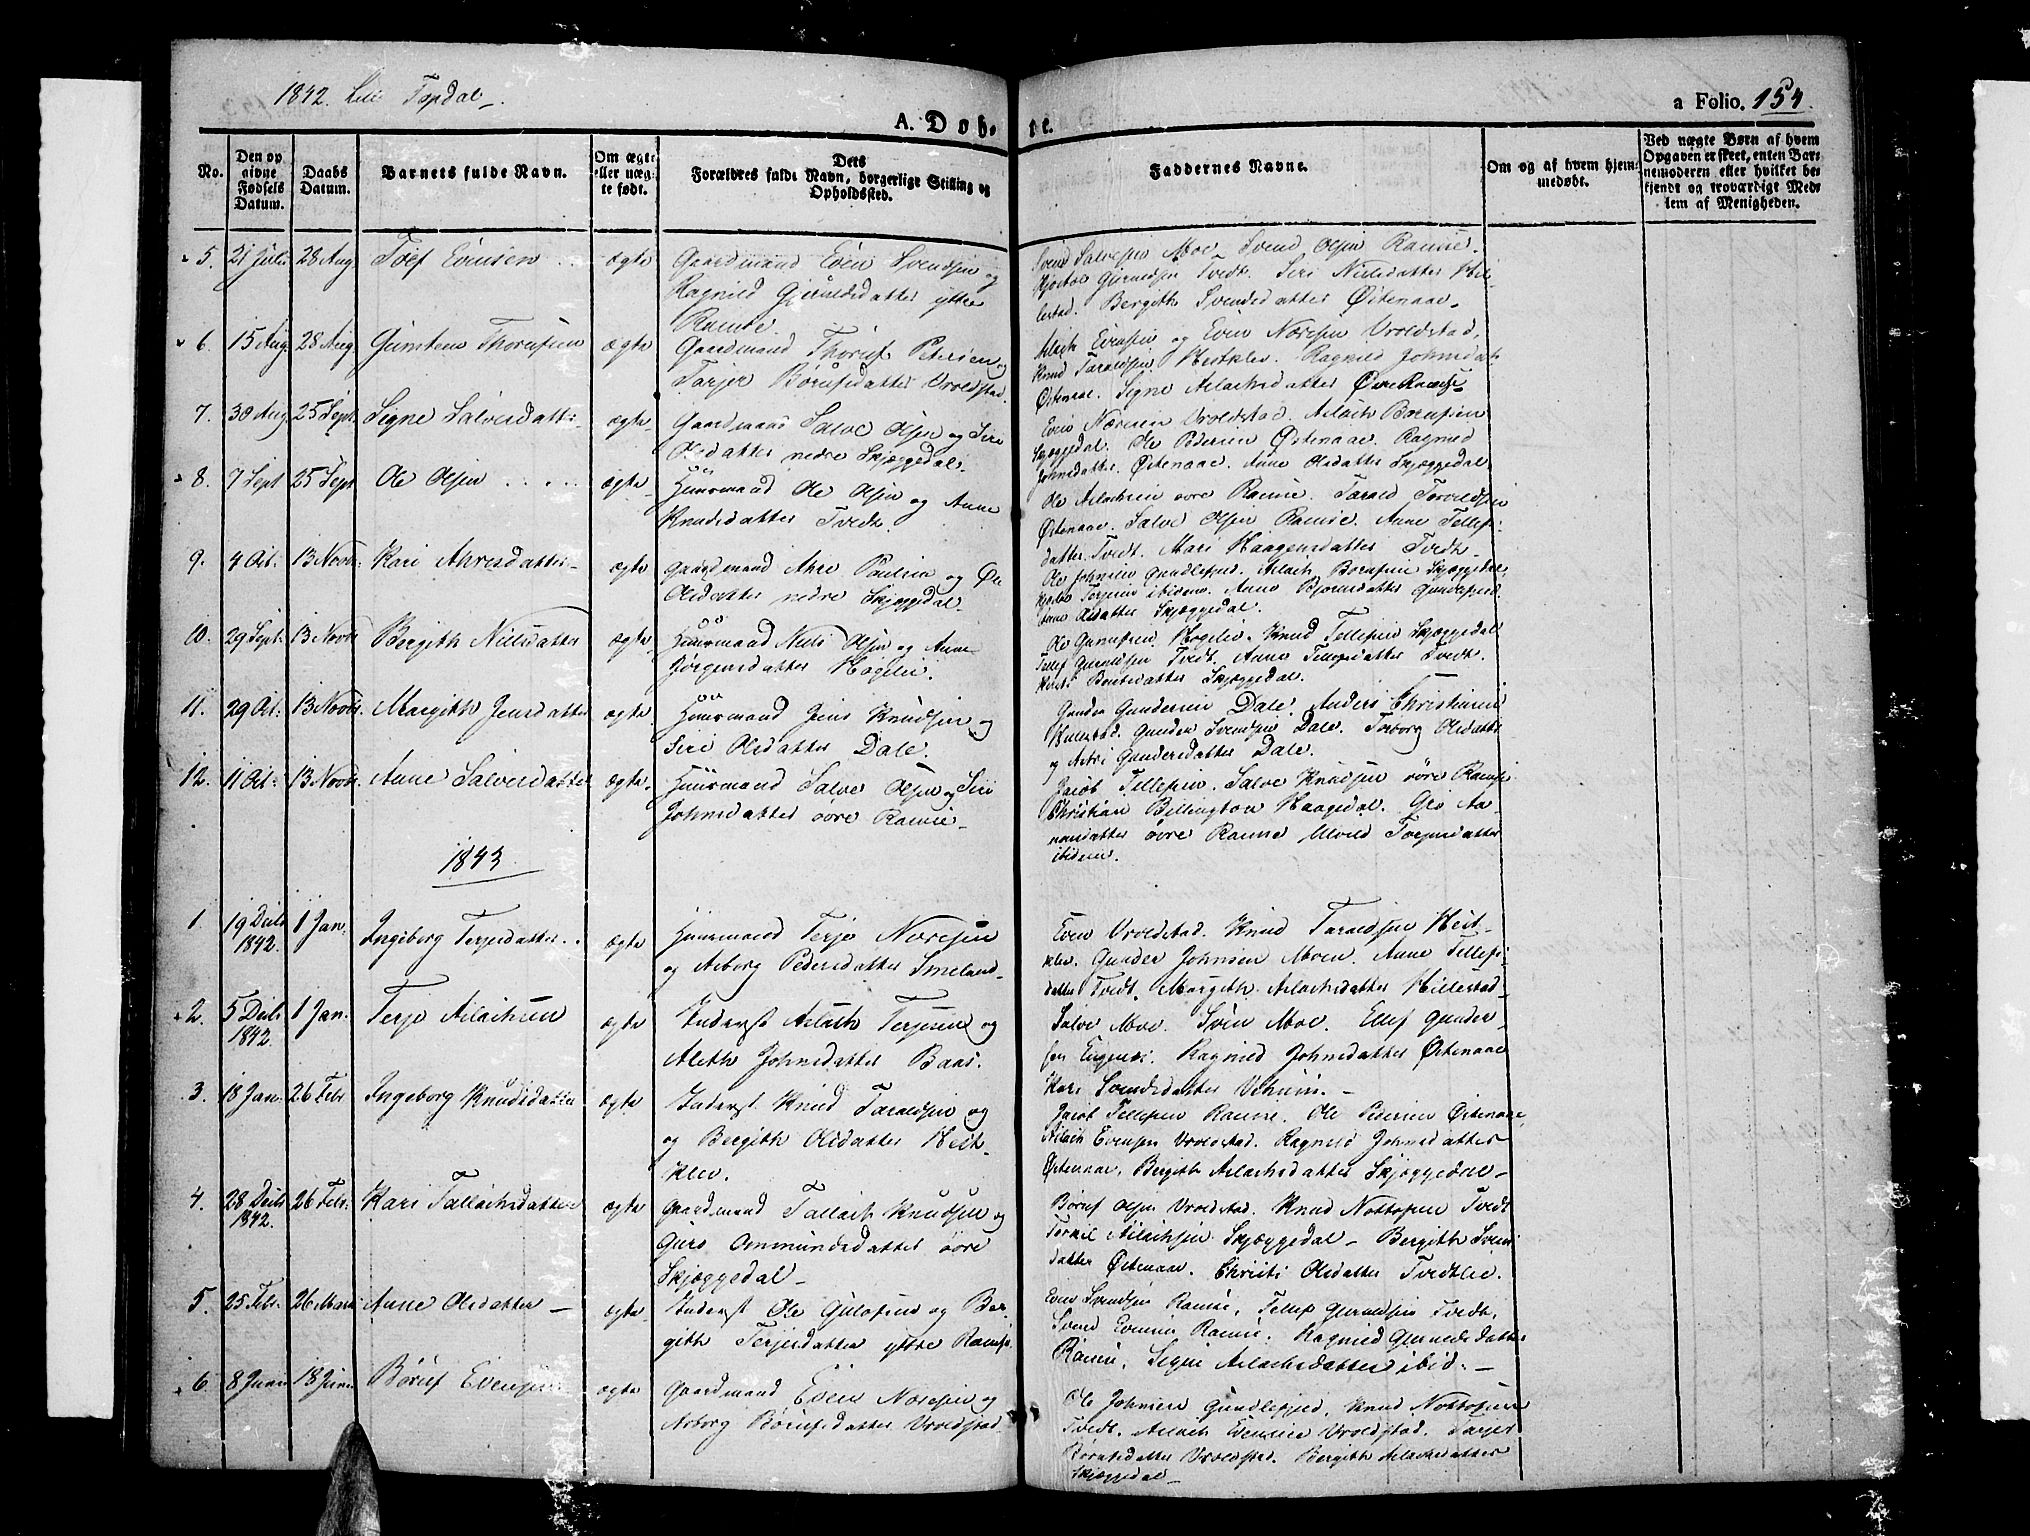 1842. Lille Topdal
a Folio. 154.
A. Dob- te.
No.
Den op
givne
Fødsels
Datum.
Daabs
Datum.
Barnets fulde Navn.
Om ægte
eller uæg-
te født.
Dets
Forældres fulde Navn, borgerlige Stilling og
Opholdssted.
Faddernes Navne.
Om og af hvem hjem-
medøbt.
Ved uægte Børn af hvem
Opgaven er skeet, enten Bar-
nemoderen eller hvilket be-
kjendt og troværdigt Med-
lem af Menigheden.
5. 21 Juli 28 Aug. Toef Evensen ægte
Gaardmand Even Svendsen og
Ragnild Gjerulsdatter yttre
Ramse.
Svend Salvesen Moe. Svend Olsen Ramse.
Gjeruldsen Tvedt. Siri Nielsdatter Hil-
lestad. Bergith Svendsdatter Østenaae.
6. 15 Aug. 28 Aug. Gunsten Thorufsen ægte
Gaardmand Thoruf Petersen og
Tarjer Børufsdatter Vroldstad.
Evensen og Even Noresen Vroldstad.
Knud Taraldsen Hestklev. Ragnild Johnsdatt.
Østenaae. Signe Aslachsdatter Øvre Ramse
7. 30 Aug. 25 Sept. Signe Salvesdatter ægte
Gaardmand Salve Olsen og Siri
Olsdatter nedre Skjeggedal.
Even Noresen Vroldstad. Aslach Børufsen
Skjeggedal. Ole Pedersen Østenaae. Ragnild
Johnsdatter Østenaae. Anne Olsdatter Skjæggedal
8. 7 Sept 25 Sept Ole Olsen ægte
Huusmand Ole Olsen og Anne
Knudsdatter Tvedt.
Ole Aslachsen øvre Ramse. Tarald Torvildsen
Østenaae. Salve Olsen Ramse. Anne Tellefs-
datter Tvedt. Mari Haagensdatter Tvedt.
9. 4 Oct: 13 Novbr. Kari Ahresdatter ægte
Gaardmand Ahre Poulsen og
Olsdatter nedre Skjeggedal.
Ole Johnsen Gundlefsjed. Aslach Børufsen Skjæggedal.
Torjersen ibidem. Anne Bjørnsdatter Gundlefsjed.
Anne Olsdatter Skjæggedal.
10. 29 Sept. 13 Novbr Bergith Nielsdatter ægte
Huusmand Niels Olsen og Anne
Jørgensdatter Høgelie.
Ole Gunufsen Høgelie. Knud Tellefsen Skjæggedal
Tellef Gjeruldsen Tvedt. Anne Tellefsdatter Tvedt.
Bentsdatter Skjæggedal.
11. 29 Oct: 13 Novbr. Margith Jensdatter ægte
Huusmand Jens Knudsen og
Siri Olsdatter Dale.
Gunder Gundersen Dale. Anders Christiansen
Hillestad. Gunder Svendsen Dale. Torborg Olsdatter
og Astri Gundersdatter Dale.
12. 11 Oct: 13 Novbr. Anne Salvesdatter ægte.
Huusmand Salve Olsen og Siri
Johnsdatter øvre Ramse
Jacob Tellefsen. Salve Knudsen øvre Ramse
Christian Billington Haagedal. Gro Aa-
nonsdatter øvre Ramse Torjersdatter
ibidem.
1843
1. 19 Decbr 1842. 1 Jan. Ingeborg Terjesdatter ægte
Huusmand Terje Noresen
og Asborg Pedersdatter Smeland
Even Vroldstad. Knud Taraldsen Hest-
klev. Gunder Johnsen Moen. Anne Tellefs-
datter Tvedt. Margith Aslachsdatter Hillestad
2. 5 Decbr 1842. 1 Jan. Terje Aslachsen ægte
Inderst Aslach Terjesen og
Aleth Johnsdatter Baas.
Salve Moe. Sven Moe. Ellef Gunder-
sen Ragnild Johnsdatter Østenaae
Kari Svendsdatter
3. 18 Jan. 26 Febr. Ingeborg Knudsdatter ægte
Inderst Knud Taraldsen og
og Bergith Olsdatter Hest-
klev.
Jacob Tellefsen Ramse. Ole Pedersen Østenaae.
Aslach Evensen Vroldstad. Ragnild Johnsdatter
Østenaae. Bergith Aslachsdatter Skjæggedal
4. 28 Decbr 1842. 26 Febr. Kari Tallachsdatter ægte
Gaardmand Tallach Knudsen og
Guro Ommundsdatter øvre
Skjæggedal
Børuf Olsen Vroldstad. Knud Nottosen Tvedt
Torkil Aslachsen Skjæggedal. Bergith Svens-
datter Østenaae. Christi Olsdatter
5. 25 Febr. 26 Marts Anne Olsdatter ægte
Inderst Ole Gulofsen og Ber-
gith Terjesdatter yttre Ramse
Even Svendsen Ramse, Tellef Gjeruldsen Tvedt.
Svend Evensen Ramse. Ragnild Gjeruldsdatter
Ramse, Signe Aslachsdatter ibid.
6. 8 Juni 18 Juni Børuf Evensen ægte
Gaardmand Even Noresen og
Asborg Børufsdatter Vroldstad
Ole Johnsen Gundlefsjed. Knud Nottosen
Tvedt. Aslach Evensen Vroldstad. Tarjer
Børufsdatter Vroldstad. Bergith Aslachsdatter
Skjæggedal